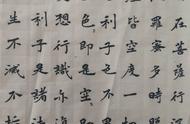 在菩薩行
羅蜜多時
皆空度一
利子色不
色色即是
想行識亦
利子是諸
生不滅不